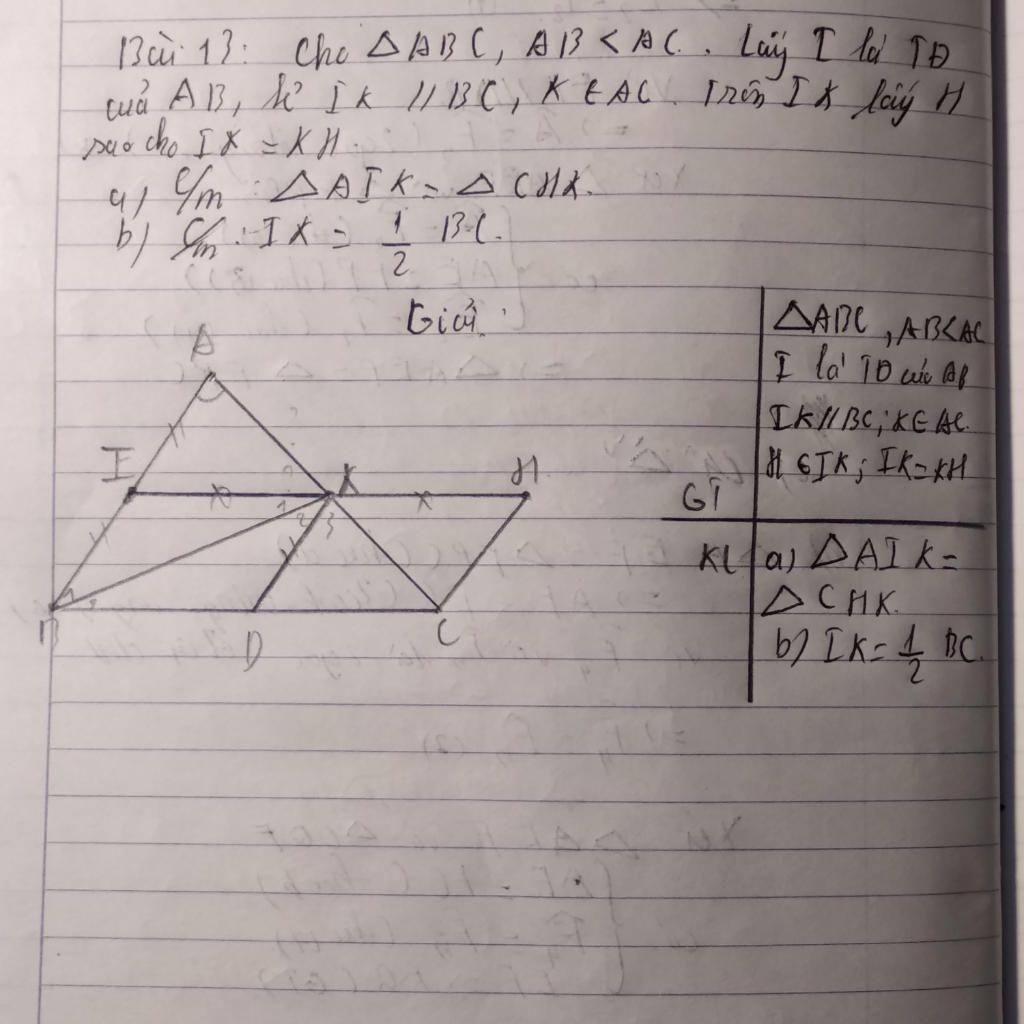 Bài 13: Cho △ABC, AB < AC. Lấy I là TĐ
của AB, kẻ IK // BC, K ∈ AC. Trên IK lấy H
sao cho IK = KH.
a) C/m : △AIK = △CHK.
b) C/m : IK = 1/2 BC.
Giải:
A
I
K
H
B
D
C
1
2
3
△ABC, AB<AC
I là TĐ của AB
IK // BC; K∈AC.
H ∈ IK; IK=KH
GT
KL
a) △AIK =
△CHK.
b) IK = 1/2 BC.